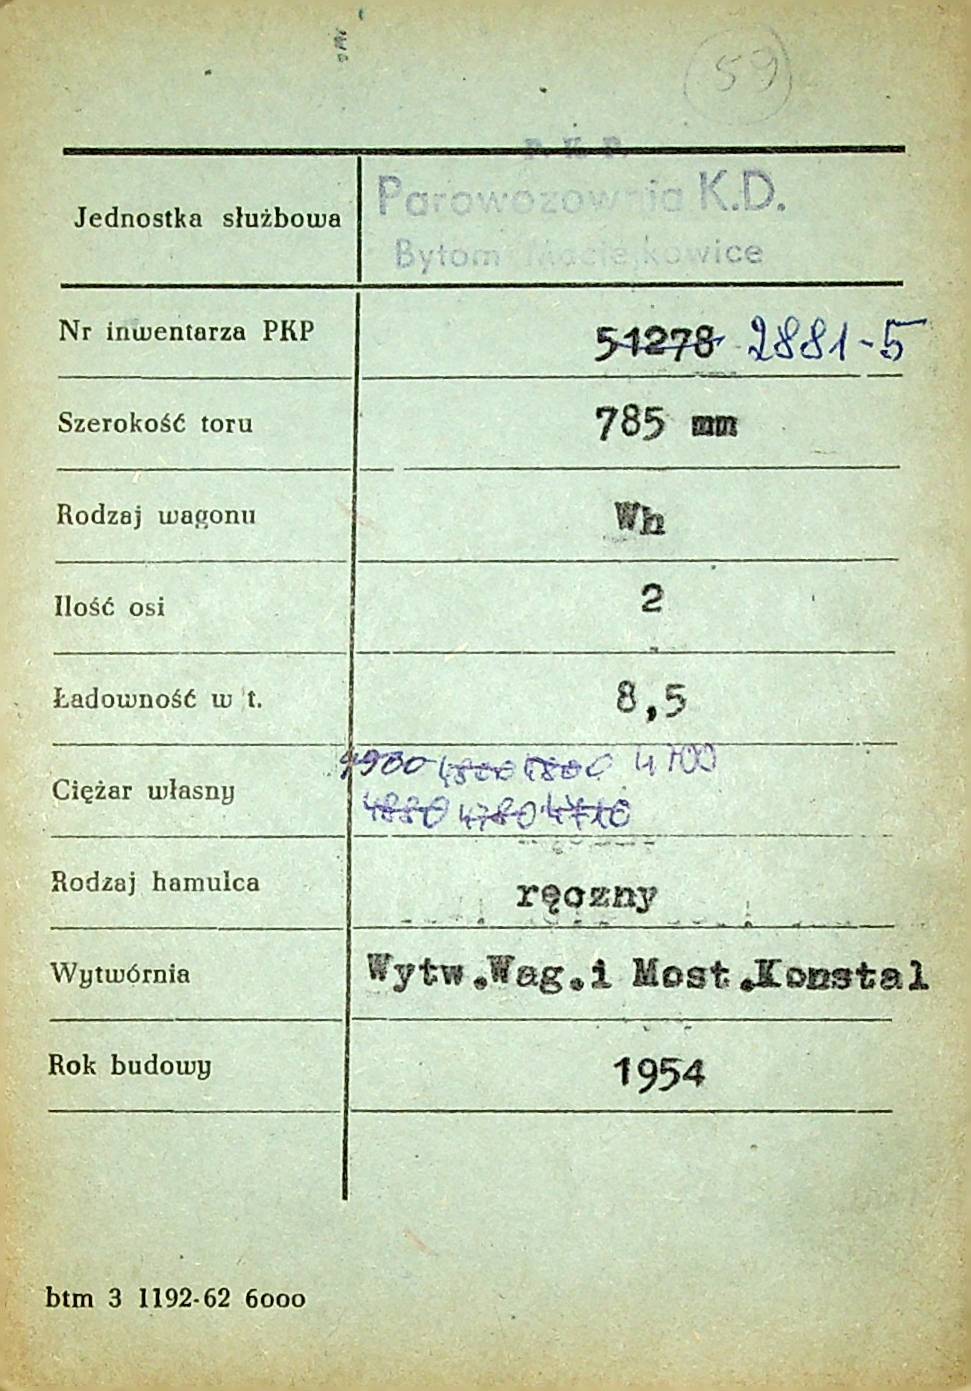 59
P. K. P.
Jednostka służbowa Parowozownia K.D.
Bytom Maciejkowice
Nr inwentarza PKP 51278 2881-5
Szerokość toru 785 mm
Rodzaj wagonu Wh
Ilość osi 2
Ładowność w t. 8,5
4900 4800 4800 4700
Ciężar własny
4880 4780 4710
Rodzaj hamulca ręczny
Wytwórnia Wytw.Wag.i Most.Konstal
Rok budowy 1954
btm 3 1192-62 6000